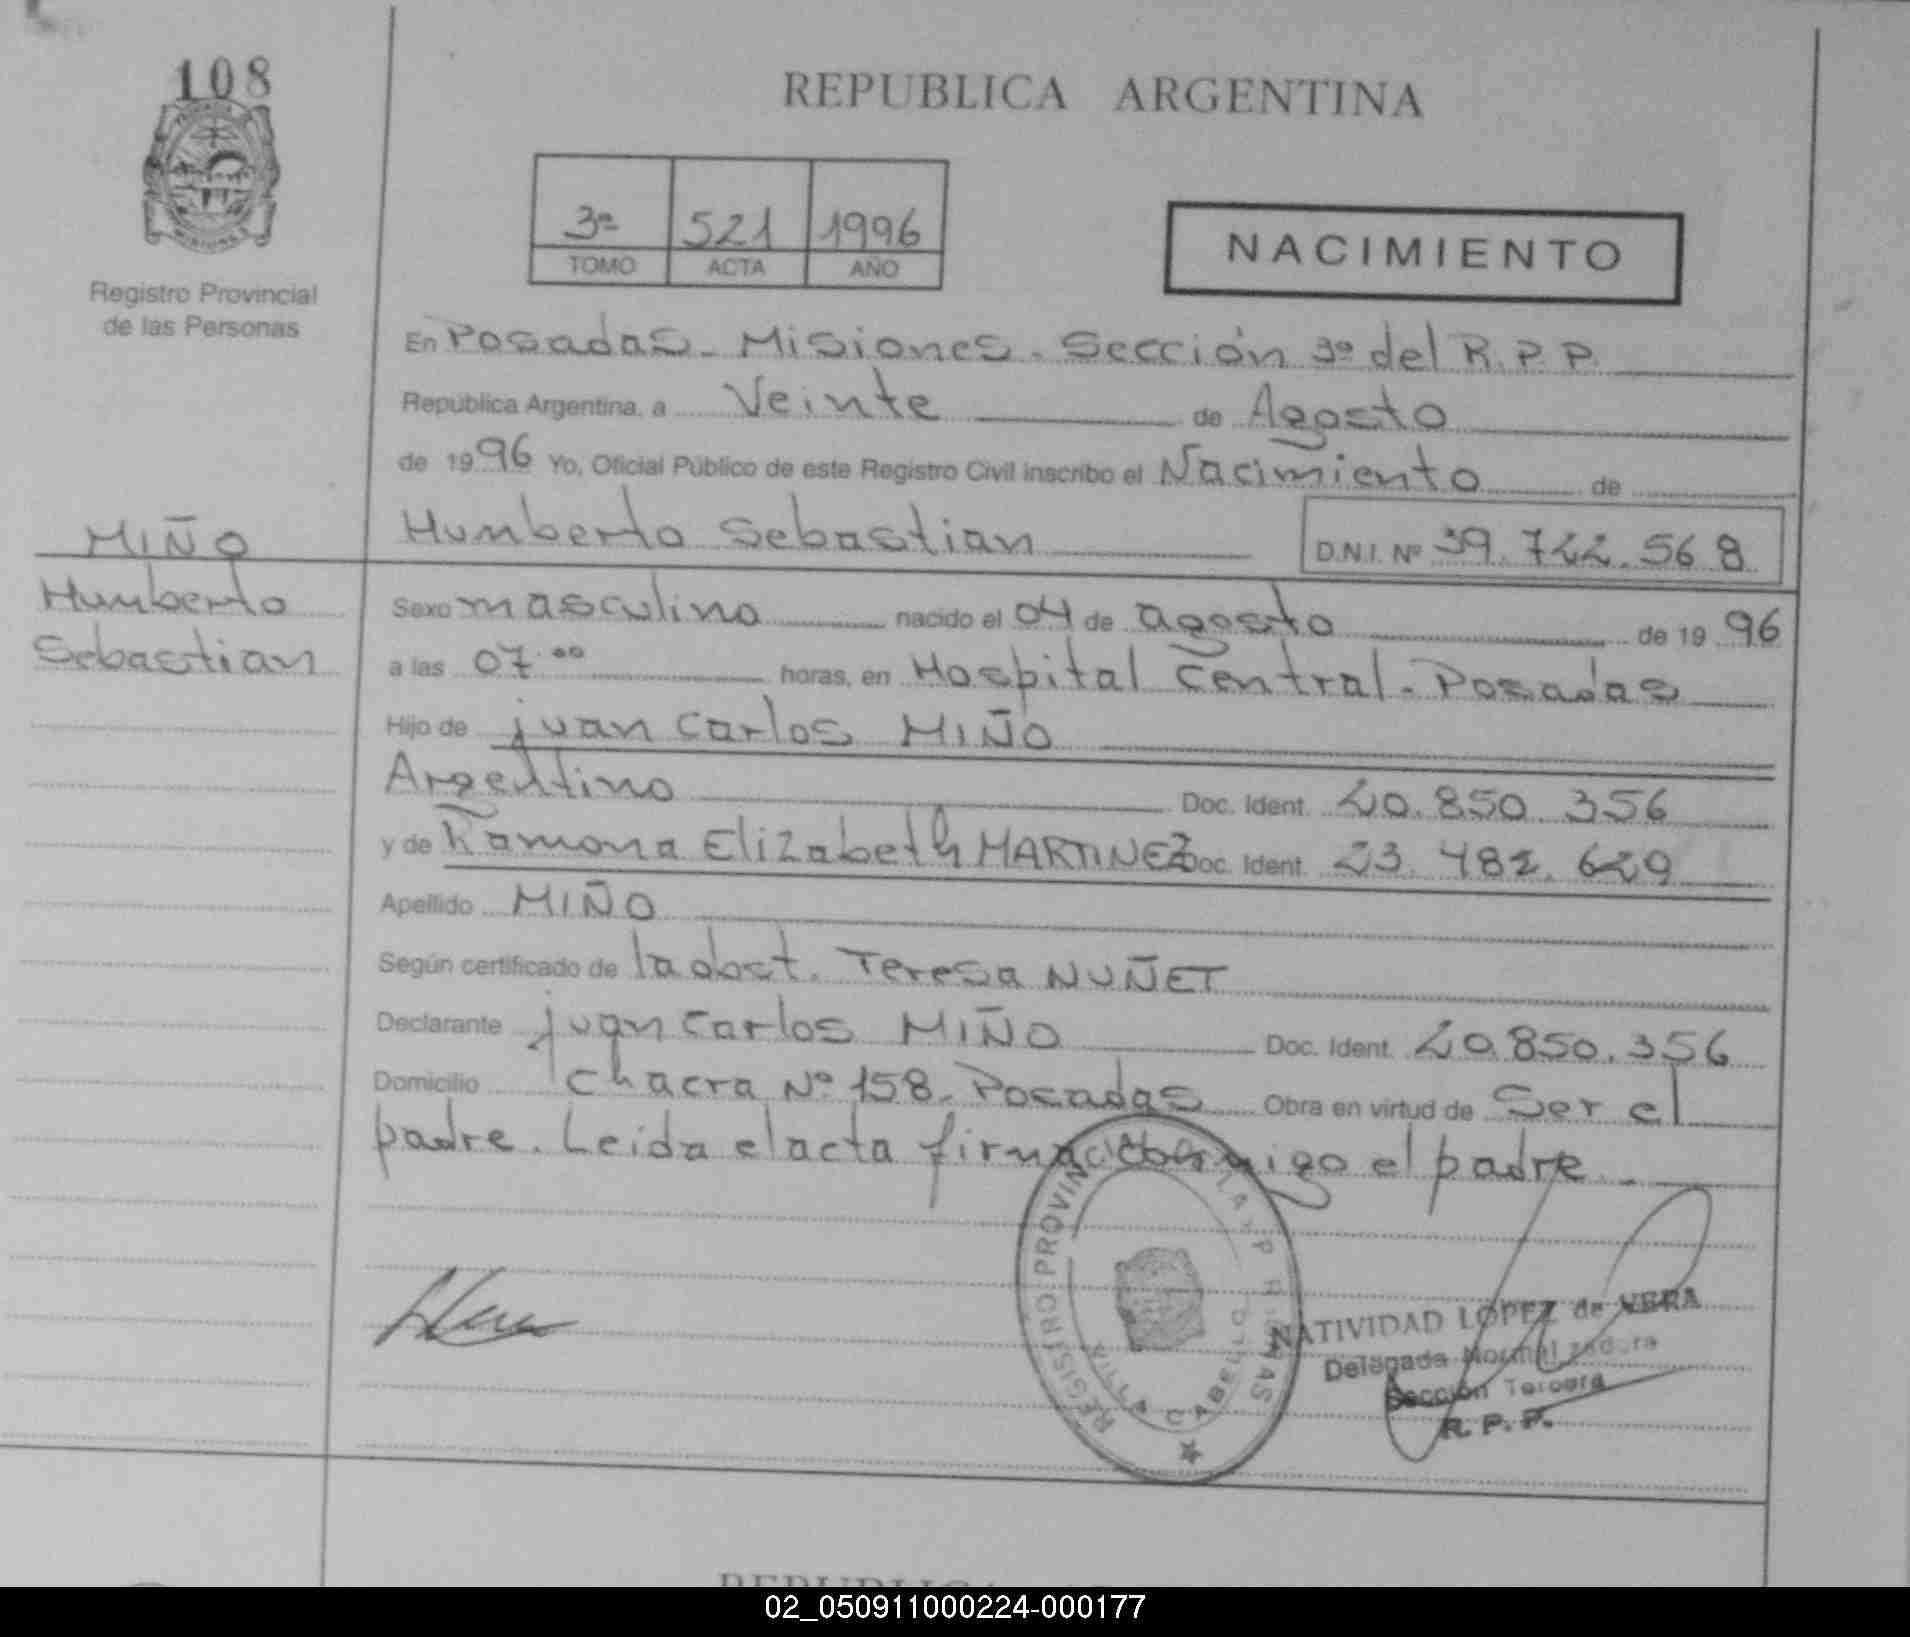 108
REPUBLICA ARGENTINA
3º 521 1996
TOMO ACTA AÑO
NACIMIENTO
Registro Provincial
de las Personas
En Posadas - Misiones. Sección 3º del R.P.P.
República Argentina, a Veinte de Agosto
de 1996 Yo, Oficial Público de este Registro Civil inscribo el Nacimiento de
Humberto Sebastian D.N.I. Nº 39.722.568
MIÑO
Humberto
Sebastian
Sexo masculino nacido el 04 de agosto de 1996
a las 07.00 horas, en Hospital Central. Posadas
Hijo de juan Carlos MIÑO
Argentino Doc. Ident. 20.850.356
y de Ramona Elizabeth MARTINEZ Doc. Ident. 23.482.629
Apellido MIÑO
Según certificado de la obst. Teresa NUÑET
Declarante juan Carlos MIÑO Doc. Ident. 20.850.356
Domicilio Chacra Nº 158. Posadas Obra en virtud de Ser el
padre. Leida el acta firma conmigo el padre.
REGISTRO PROVIN
VILLA CABELLO
NATIVIDAD LOPEZ de VERA
Delegada Normalizadora
Sección Tercera
R. P. P.
REPUBLICA
02_050911000224-000177